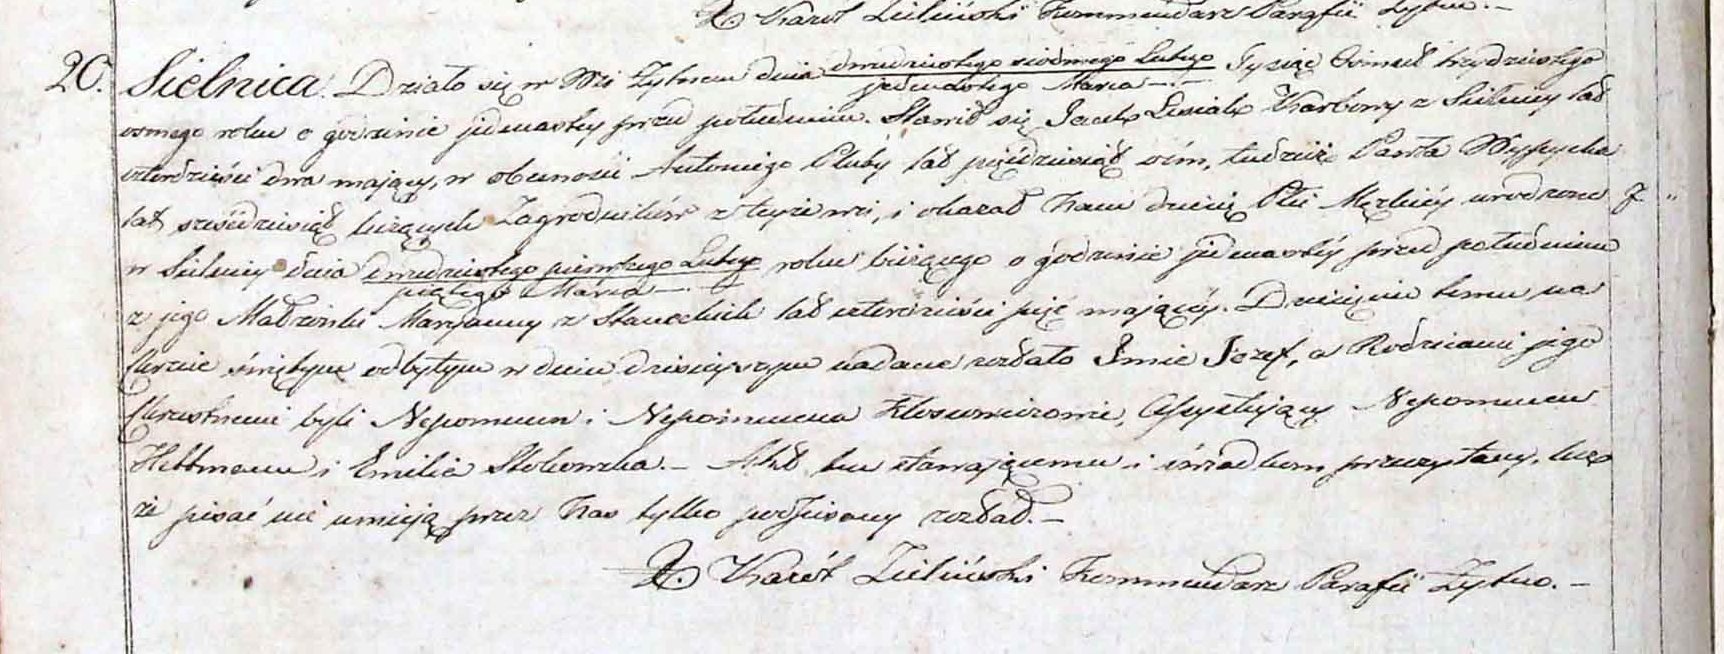 X. Karol Zieliński Kommendarz Parafii Żytno.–
20. Sielnica. Działo się w Wsi Żytnem dnia dwudziestego siódmego Lutego Tysiąc Ośmset trzydziestego
jedenastego Marca –
osmego roku o godzinie jedenastey przed południem. Stawił się Jacek Lesiak Karbowy z Sielnicy lat
czterdzieści dwa maiący, w obecności Antoniego Pluby lat pięćdziesiąt ośm, tudzież Pawła
lat sześćdziesiąt liczących Zagrodników z teyże wsi, i okazał Nam dziecię Płci Męzkiéy urodzone
w Sielnicy dnia dwudziestego pierwszego Lutego roku bieżącego o godzinie jedenastéy przed południem
piątego Marca –
z jego Małżonki Maryanny z Stauckich lat czterdzieści pięć maiącéy. Dziecięciu temu na
Chrzcie świętym odbytym w dniu dzisieyszym nadane zostało Imie Jozef, a Rodzicami jego
Chrzestnemi byli Nepomucen i Nepomucena Assystujący Nepomucen
Hettmann i Emilia Stokowska. – Akt ten stawaiącemu i świadkom przeczytany, lecz
że pisać nie umieją przez Nas tylko podpisany został. –
X. Karól Zieliński Kommendarz Parafii Żytno. –